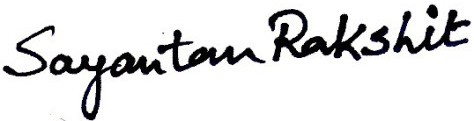 Sayantan Rakshit